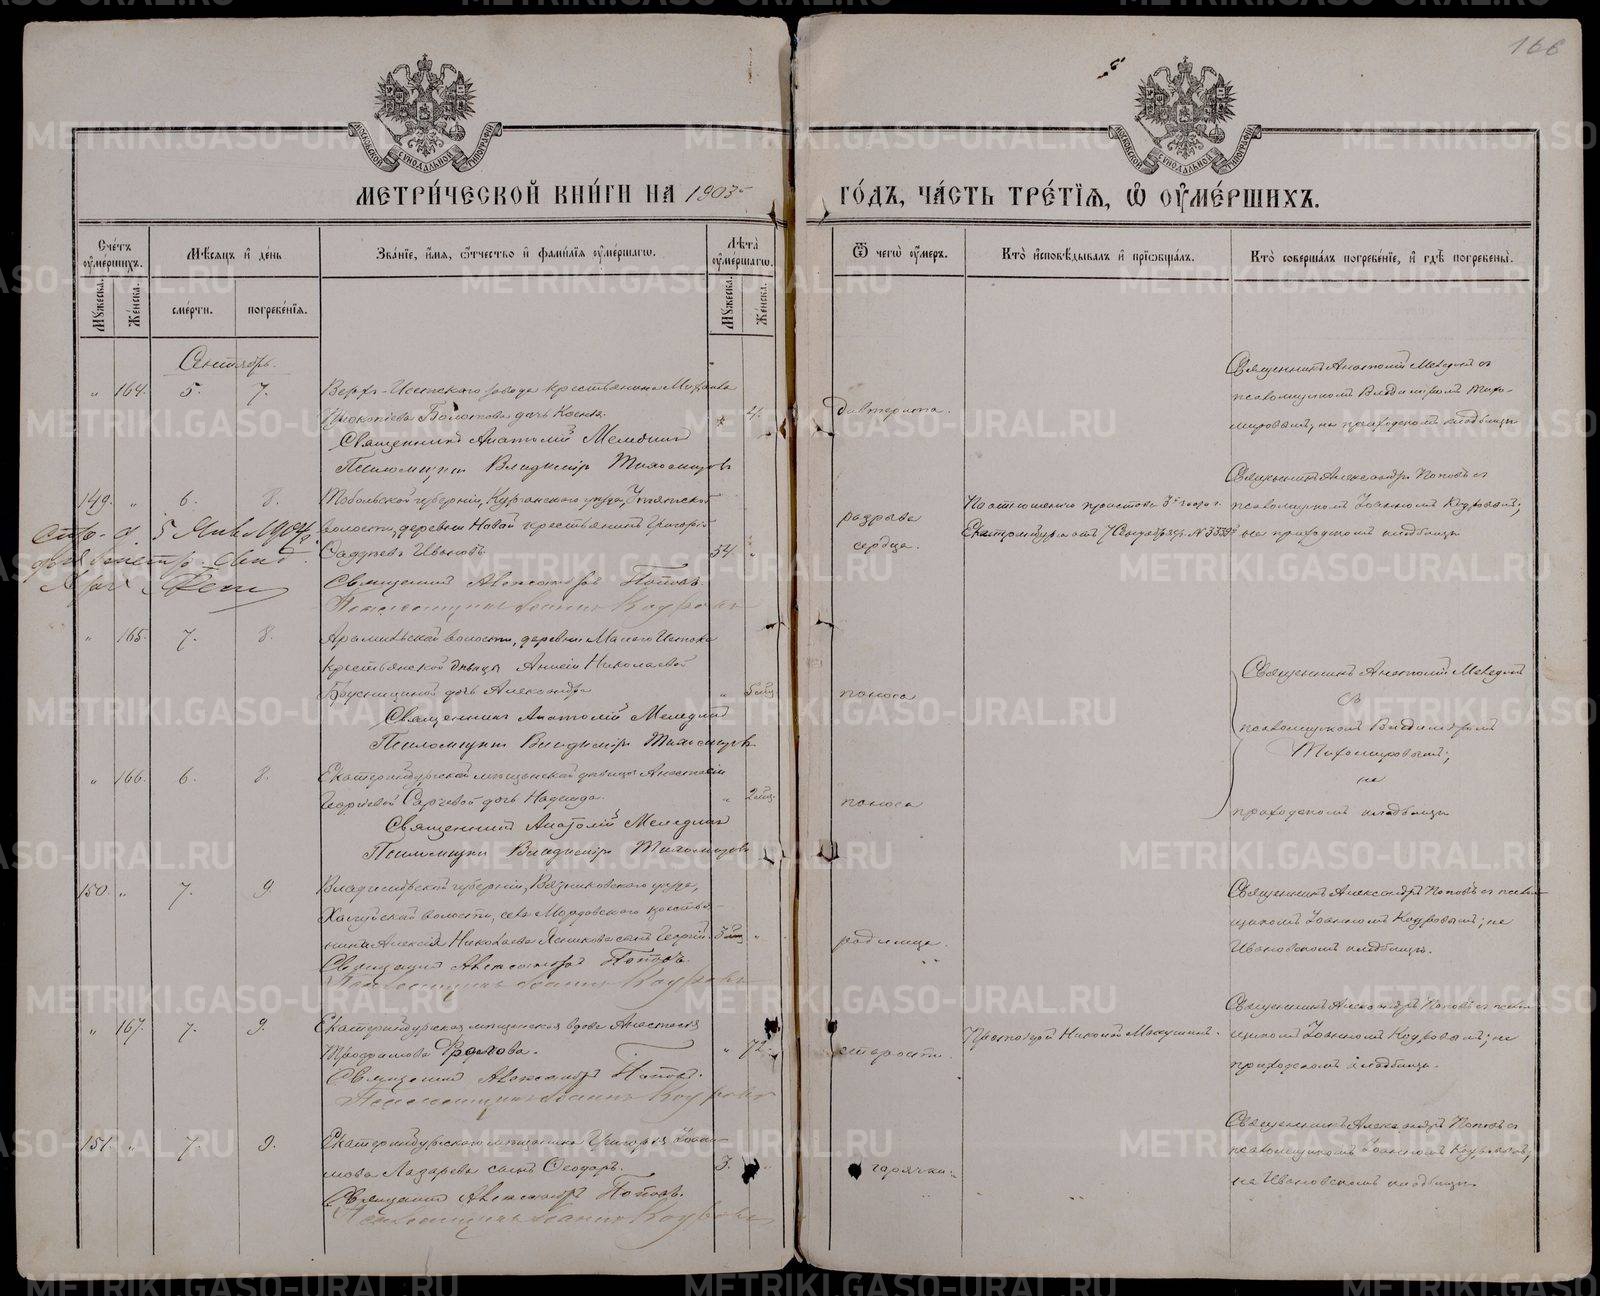 166
МОСКОВСКОЙ СѴНОДАЛЬНОЙ ТИПОГРАФІИ
МОСКОВСКОЙ СѴНОДАЛЬНОЙ ТИПОГРАФІИ
МЕТРИ́ЧЕСКОЙ КНИ́ГИ НА 1903 ГО́ДЪ, ЧА́СТЬ ТРЕ́ТІЯ, Ѡ ОУМЕ́РШИХЪ.
Сче́тъ оуме́ршихъ.
Мѣ́сяцъ и де́нь
Зва́ніе, и́мя, о́тчество и фами́лія оуме́ршагѡ.
Лѣта̀ оуме́ршагѡ.
Ѿ чегѡ̀ оу́меръ.
Кто̀ исповѣ́дывалъ и пріобща́лъ.
Кто̀ соверша́лъ погребе́ніе, и гдѣ̀ погребены̀.
Мꙋ́жеска.
Же́нска.
сме́рти.
погребе́нія.
Мꙋ́жеска.
Же́нска.
Сентябрь.
„ 164. 5. 7. Верхъ-Исетскаго завода крестьянина Михаила
Прокопіева Болотова дочь Ксенія. 4. дифтерита.
Священникъ Анатолій Меледин
Псаломщикъ Владиміръ Тихомировъ
Священникъ Анатолій Меледин съ
псаломщикомъ Владиміромъ Тихо-
мировымъ, на приходскомъ кладбищѣ
149. „ 6. 8. Тобольской губерніи, Курганскаго уѣзда, Утятской
волости, деревни Новой крестьянинъ Григорій
Ивановъ. 54. „ разрыва сердца.
Священникъ Александръ Поповъ.
Псаломщикъ Іоаннъ Кодровъ
По отношенію пристава 3й части г.
Екатеринбурга отъ 7 Сентября
Священникъ Александръ Поповъ съ
псаломщикомъ Іоанномъ Кодровымъ;
на приходскомъ кладбищѣ
„ 165. 7. 8. Арамильской волости, деревни Малаго Истока
крестьянской дѣвицы Анисіи Николаевой
Брусницыной дочь Александра „ поноса
Священникъ Анатолій Меледин
Псаломщикъ Владиміръ Тихомировъ
Священникъ Анатолій Меледин
съ
псаломщикомъ Владиміромъ
Тихомировымъ;
на
приходскомъ кладбищѣ
„ 166. 6. 8. Екатеринбургской мѣщанской дѣвицы Анастасіи
Георгіевой дочь Надежда. „ 2 мѣс. поноса
Священникъ Анатолій Меледин
Псаломщикъ Владиміръ Тихомировъ
150. „ 7. 9. Владимірской губерніи, Вязниковскаго уѣзда,
Холуйской волости, села Мордовскаго крестья-
нина Алексія Николаева Ясникова сынъ Георгій. 3 мѣс. „ родимца.
Священникъ Александръ Поповъ.
Псаломщикъ Іоаннъ Кодровъ
Священникъ Александръ Поповъ съ псалом-
щикомъ Іоанномъ Кодровымъ; на
Ивановскомъ кладбищѣ.
„ 167. 7. 9. Екатеринбургская мѣщанская вдова Анастасія
Фролова. „ 72. старости.
Священникъ Александръ Поповъ.
Псаломщикъ Іоаннъ Кодровъ
Протоіерей Николай
Священникъ Александръ Поповъ съ псалом-
щикомъ Іоанномъ Кодровымъ; на
приходскомъ кладбищѣ.
151. „ 7. 9. Екатеринбургскаго мѣщанина Григорія Іоаки-
мова Лазарева сынъ Ѳеодоръ. 3. „ горячки.
Священникъ Александръ Поповъ.
Псаломщикъ Іоаннъ Кодровъ
Священникъ Александръ Поповъ съ
псаломщикомъ Іоанномъ Кодровымъ;
на Ивановскомъ кладбищѣ.
METRIKI.GASO-URAL.RU